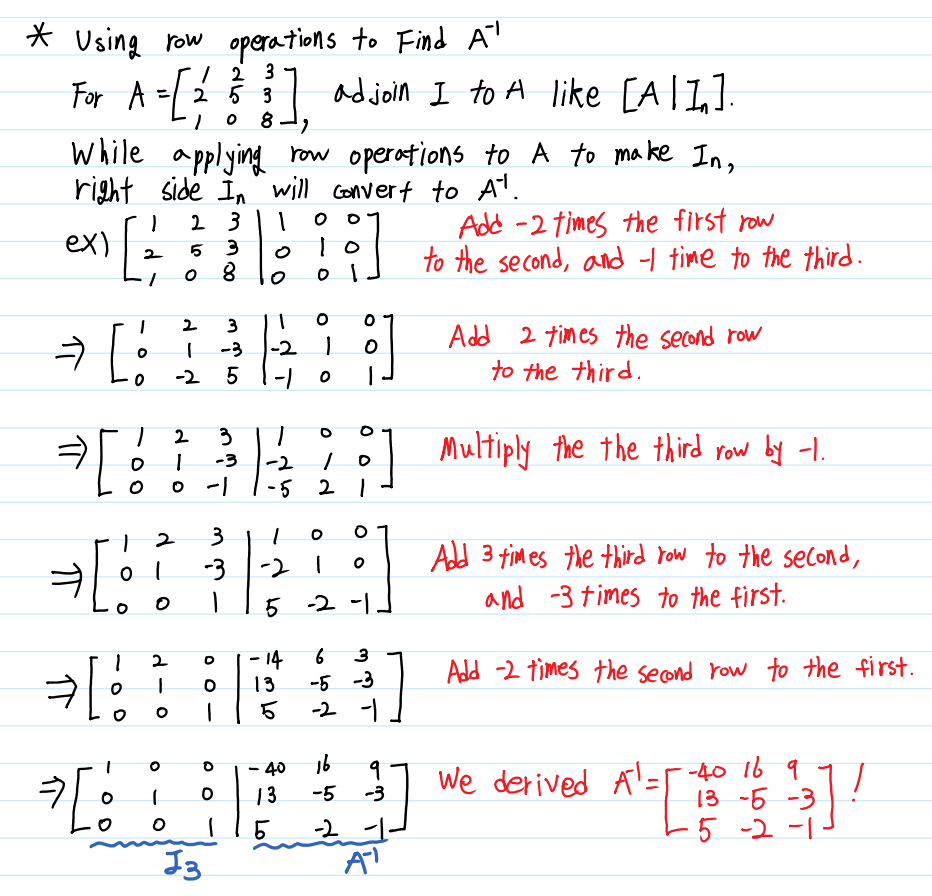 * Using row operations to Find A⁻¹
For A = [1 2 3; 2 5 3; 1 0 8], adjoin I to A like [A | Iₙ].
While applying row operations to A to make Iₙ,
right side Iₙ will convert to A⁻¹.
ex) [1 2 3 | 1 0 0; 2 5 3 | 0 1 0; 1 0 8 | 0 0 1]
Add -2 times the first row
to the second, and -1 time to the third.
⇒ [1 2 3 | 1 0 0; 0 1 -3 | -2 1 0; 0 -2 5 | -1 0 1]
Add 2 times the second row
to the third.
⇒ [1 2 3 | 1 0 0; 0 1 -3 | -2 1 0; 0 0 -1 | -5 2 1]
Multiply the the third row by -1.
⇒ [1 2 3 | 1 0 0; 0 1 -3 | -2 1 0; 0 0 1 | 5 -2 -1]
Add 3 times the third row to the second,
and -3 times to the first.
⇒ [1 2 0 | -14 6 3; 0 1 0 | 13 -5 -3; 0 0 1 | 5 -2 -1]
Add -2 times the second row to the first.
⇒ [1 0 0 | -40 16 9; 0 1 0 | 13 -5 -3; 0 0 1 | 5 -2 -1]
We derived A⁻¹ = [-40 16 9; 13 -5 -3; 5 -2 -1] !
I₃ A⁻¹